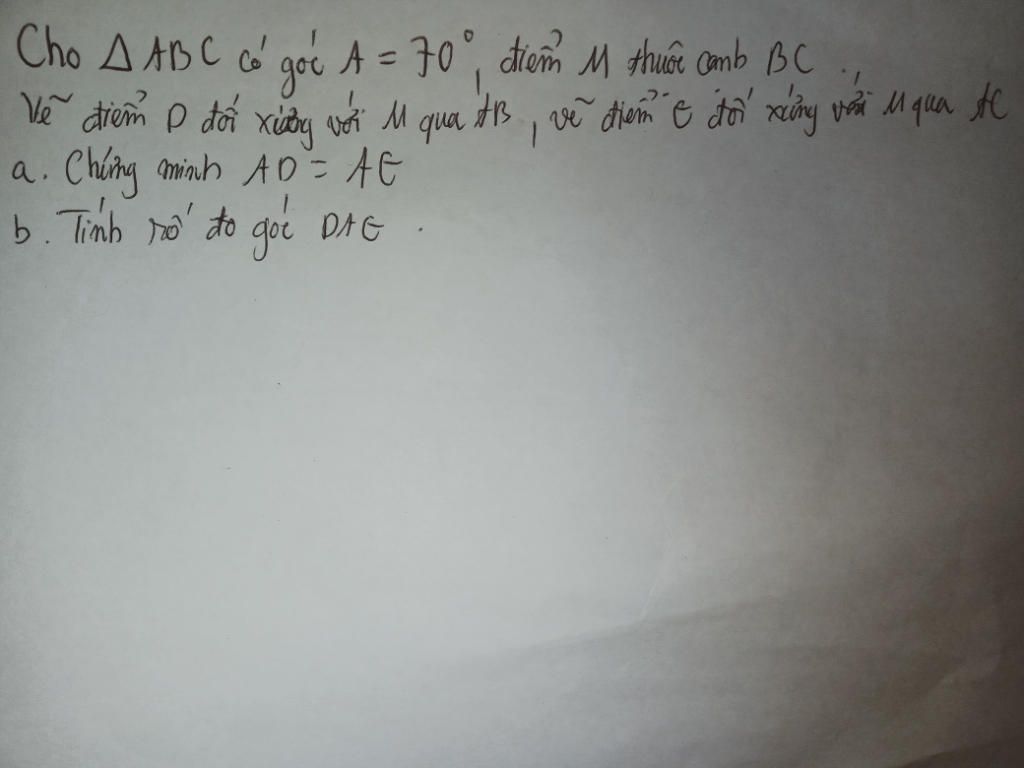 Cho △ABC có góc A = 70°, điểm M thuộc cạnh BC.
Vẽ điểm D đối xứng với M qua AB, vẽ điểm E đối xứng với M qua AC
a. Chứng minh AD = AE
b. Tính số đo góc DAE.